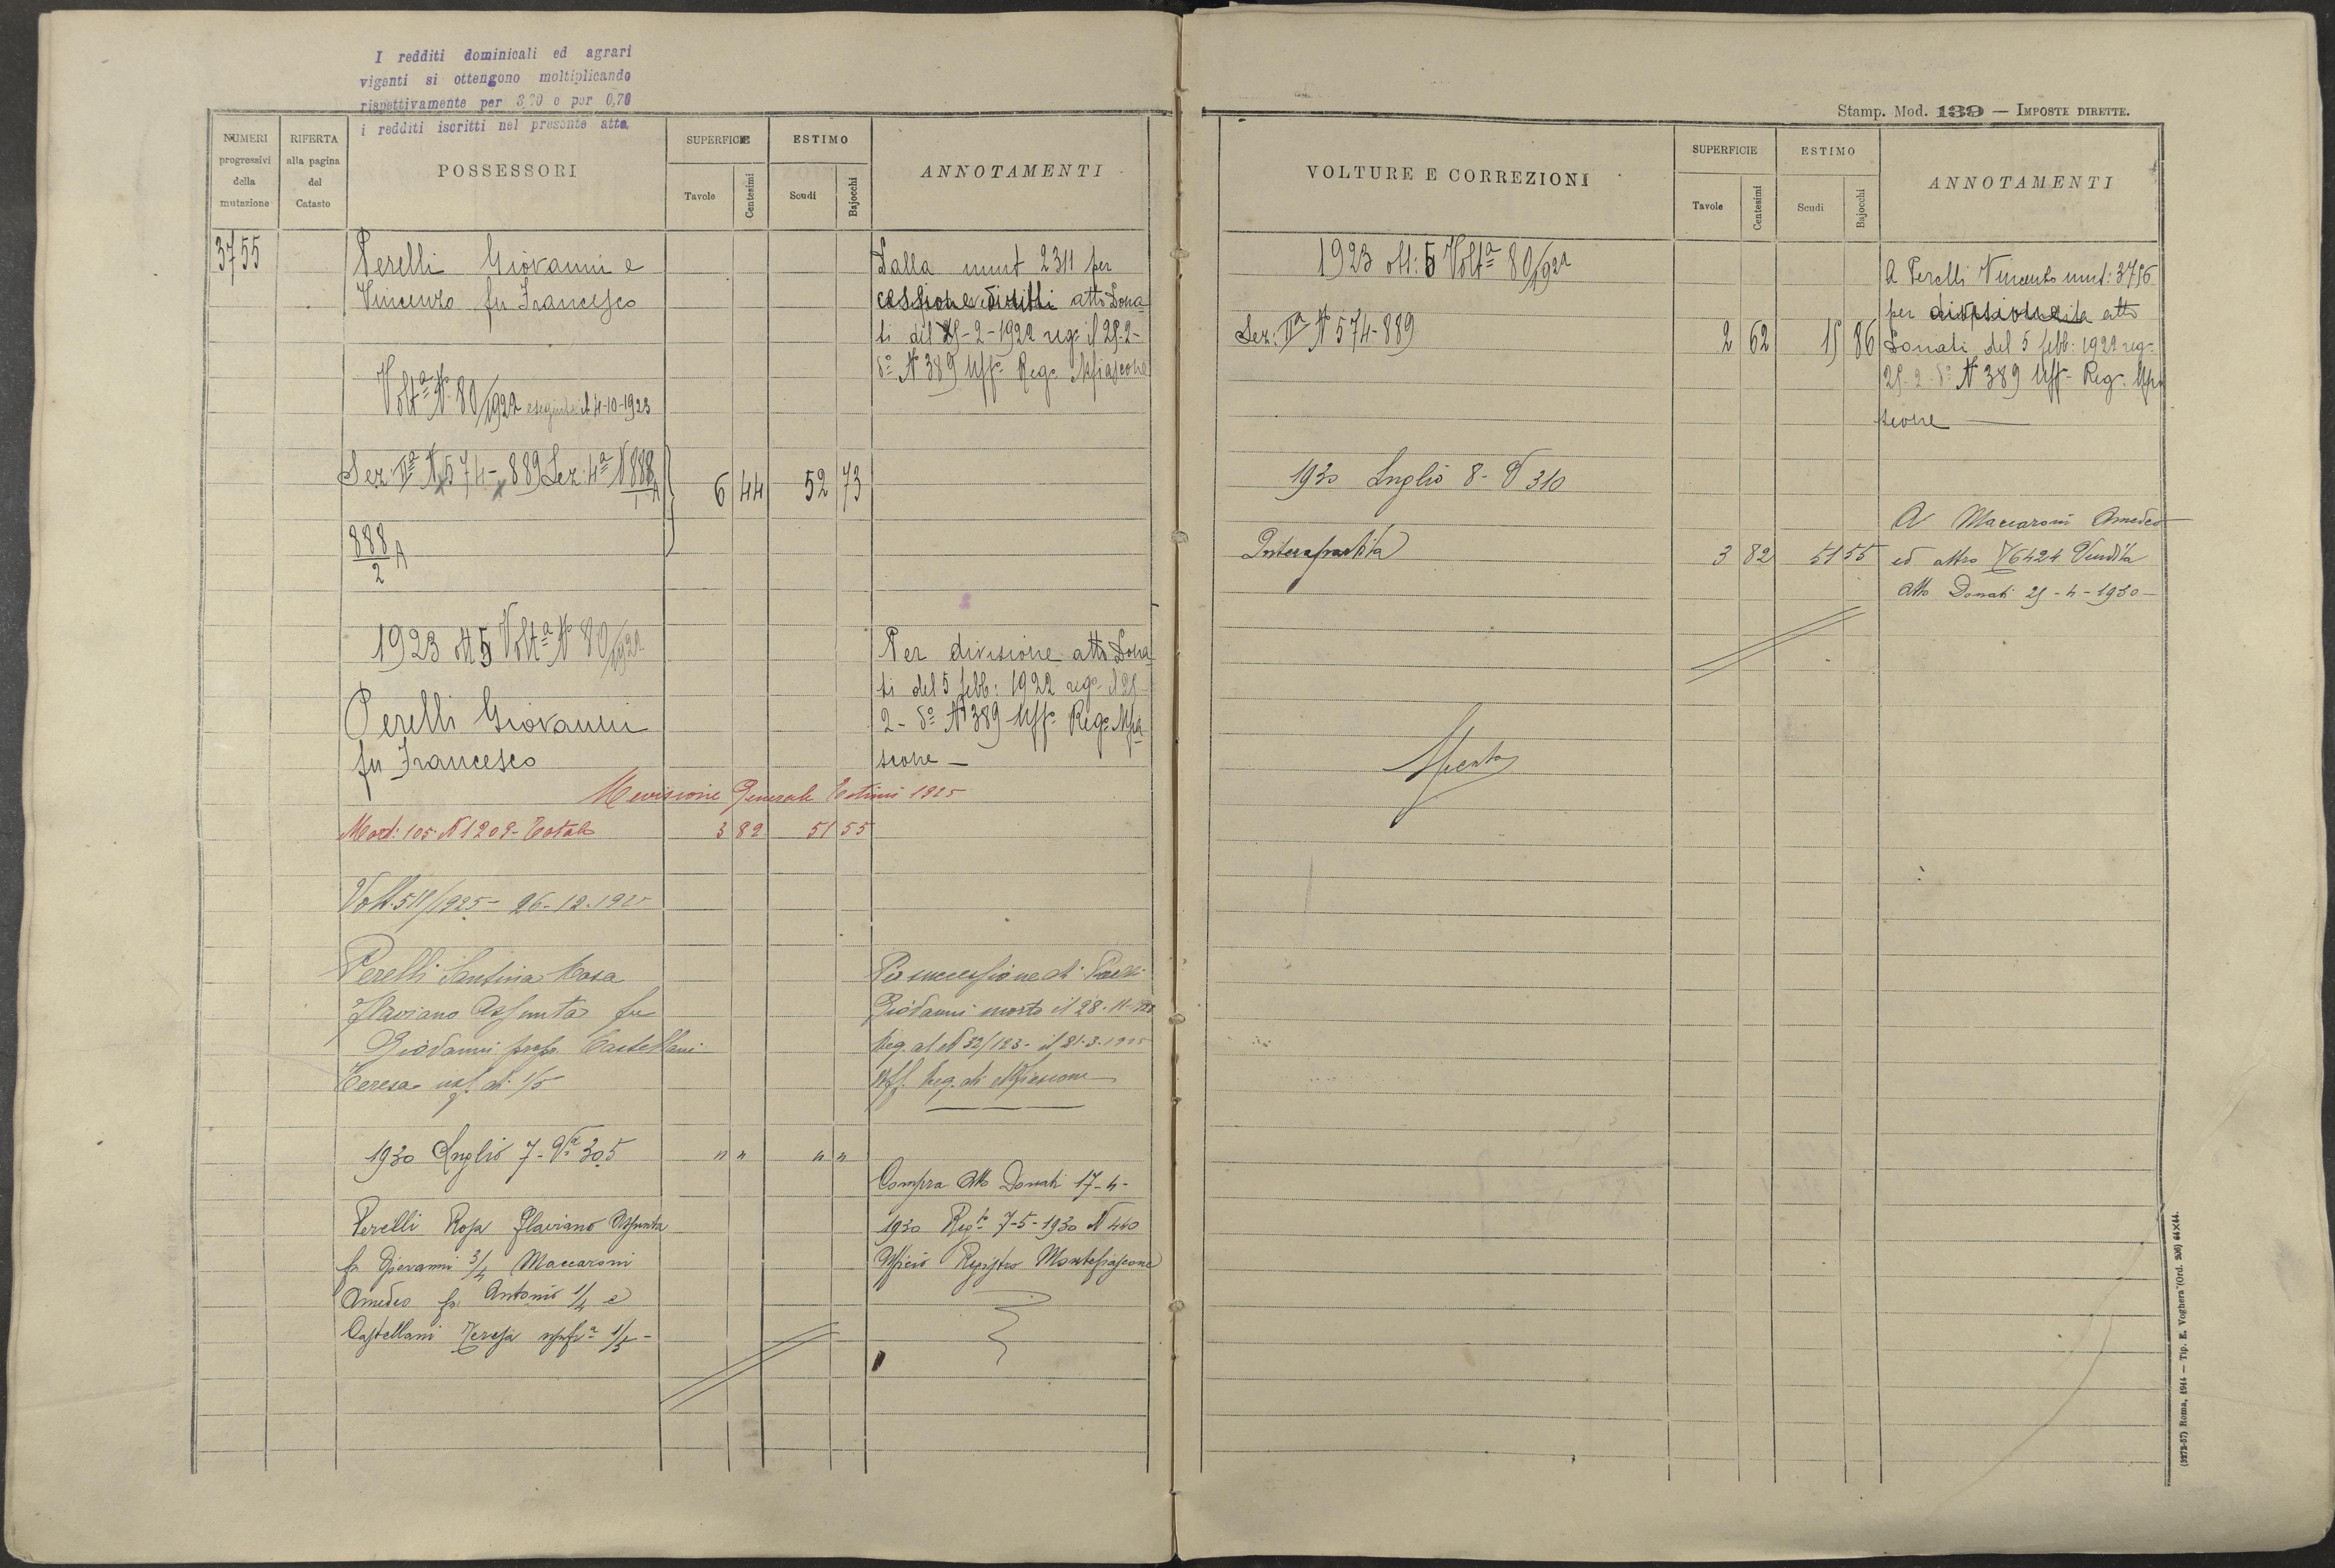 I redditi dominicali ed agrari
vigenti si ottengono moltiplicando
rispettivamente per 3,20 e per 0,70
i redditi iscritti nel presente atto.
NUMERI progressivi della mutazione
RIFERTA alla pagina del Catasto
POSSESSORI
SUPERFICIE
Tavole
Centesimi
ESTIMO
Scudi
Bajocchi
ANNOTAMENTI
3755
Perelli Giovanni e
Vincenzo fu Francesco
Dalla mut 2311 per
cessione diritti atto Dona
ti del 5-2-1922 reg. il 25-2-
do N 389 Uff. Reg. Mfiascone
Volta N. 80/1922 eseguita il 4-10-1923
Sez. IIa N 574-889 Sez. 4a N 888/1 A
6 44 52 73
888/2 A
1923 ott 5 Volta N 80/1922
Perelli Giovanni
fu Francesco
Per divisione atto Dona
ti del 5 febb: 1922 reg. il 25
2- do N 389 Uff. Reg. Mfia
scone —
Revisione Generale Estimi 1925
Mod: 105 N 1209- Totale 3 82 51 55
Volt. 511/1925 - 26-12-1925
Perelli Santina Rosa
Flaviano Assunta fu
Giovanni propr. Castellani
Teresa usf. di 1/5
Per successione di Perelli
Giovanni morto il 28-11-
Reg. al N 32/123- il 21-3-1925
Uff. Reg. di Mfiascone
1930 Luglio 7- Va 305 " " " "
Perelli Rosa Flaviano Assunta
fu Giovanni 3/4 Maccaroni
Amedeo fu Antonio 1/4 e
Castellani Teresa usufra 1/5 -
Compra Atto Donati 17-4-
1930 Regto 7-5-1930 N 440
Ufficio Registro Montefiascone
Stamp. Mod. 139 — IMPOSTE DIRETTE.
VOLTURE E CORREZIONI
SUPERFICIE
Tavole
Centesimi
ESTIMO
Scudi
Bajocchi
ANNOTAMENTI
1923 ott: 5 Volta 80/1922
Sez: IIa N 574-889 2 62 15 86
A Perelli Vincenzo mut: 3756
per divisione atto
Donati del 5 febb: 1922 reg.
25-2- do N 389 Uff. Reg. Mfia
scone —
1930 Luglio 8- V 310
Intera partita 3 82 51 55
A Maccaroni Amedeo
ed altro N 6424 Vendita
Atto Donati 25-4-1930-
Spenta
(3272-57) Roma, 1914 — Tip. E. Voghera (Ord. 206) 64×44.